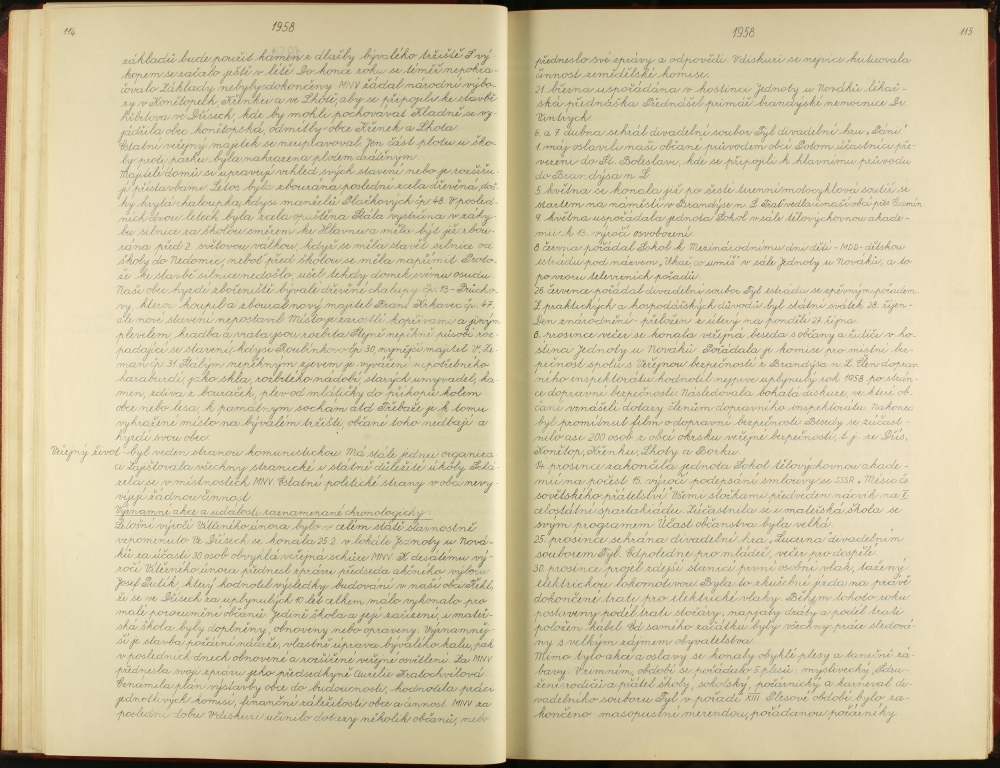 114
1958
základů bude použit kámen z dlažby bývalého tržiště. S vý-
kopem se začalo ještě v létě. Do konce roku se téměř nepokra-
čovalo. Základy nebyly dokončeny. MNV žádal národní výbo-
ry v Konětopech, Křenku a ve Lhotě, aby se připojily ke stavbě
hřbitova ve Dřísech, kde by mohli pochovávat. Kladně se vy-
jádřila obec konětopská, odmítly obce Křenek a Lhota.
Ostatní veřejný majetek se neupravoval. Jen část plotu u ško-
ly proti parku byla nahrazena plotem drátěným.
Majitelé domů si upravují vzhled svých stavení nebo je rozšiřu-
jí přístavbami. Letos byla zbourána poslední zcela dřevěná, doš-
ky krytá chaloupka, kdysi manželů Plachových čp. 48. V posled-
ních dvou letech byla zcela opuštěna. Stála vystrčena v zahy-
bu silnice za školou směrem ke Hlavnu a měla být již zbou-
rána před 2. světovou válkou, když se měla stavět silnice od
školy do Nedomic, neboť před školou se měla napřímit. Proto-
že ke stavbě silnice nedošlo, ušel tehdy domek svému osudu.
Naši obec hyzdí zbořeniště bývalé dřevěné chalupy čp. 13 - Průcho-
vy, kterou koupil a zboural nový majitel Frant. Krkavec čp. 47,
ale nové stavení nepostavil. Místo je zarostlé kopřivami a jiným
plevelem, hradba a vrata jsou rozbita. Stejně nepěkně působí roz-
padající se stavení, kdysi Roubínkovo čp. 30, nynější majitel V. Ze-
man čp. 31. Stálým nepěkným zjevem je vyvážení nepotřebného
haraburdí, jako skla, rozbitého nádobí, starých umyvadel, ka-
mení, zdiva z bouraček, plev od mlátičky do příkopů kolem
obce nebo lesa, k památným sochám atd. Třebaže je k tomu
vyhražené místo na bývalém tržišti, občané toho nedbají a
hyzdí svou obec.
Veřejný život - byl veden stranou komunistickou. Má stále jednu organiza-
ci. Zajišťovala všechny stranické i státně důležité úkoly. Schá-
zela se v místnostech MNV. Ostatní politické strany v obci nevy-
víjejí žádnou činnost.
Významné akce a události zaznamenané chronologicky:
Letošní výročí Vítězného února bylo v celém státě slavnostně
vzpomenuto. Ve Dřísech se konala 25.2. v lokále Jednoty u Nová-
ků za účasti 30 osob obvyklá veřejná schůze MNV. K desátému vý-
ročí Vítězného února přednesl zprávu předseda akčního výboru
Josef Šutík, který hodnotil výsledky budování v naší obci. Řekl,
že se ve Dřísech za uplynulých 10 let celkem málo vykonalo pro
malé porozumění občanů. Jedině škola a její zařízení, i mateř-
ská škola byly doplněny, obnoveny nebo opraveny. Významněj-
ší je stavba požární nádrže, vlastně úprava bývalého kalu, pak
v posledních dnech obnovené a rozšířené veřejné osvětlení. Za MNV
přednesla svoji zprávu jeho předsedkyně Aurelie Kratochvílová.
Oznámila plán výstavby obce do budoucnosti, hodnotila práci
jednotlivých komisí, finanční záležitosti obce a činnost MNV za
poslední dobu. V diskuzi učinilo dotazy několik občanů, nebo
1958
115
předneslo své zprávy a odpovědi. V diskuzi se nejvíce hutovala
činnost zemědělské komise.
21. března uspořádána v hostinci Jednoty u Nováků lékař-
ská přednáška. Přednášel primář brandýské nemocnice Dr.
Vintrych.
6. a 7. dubna sehrál divadelní soubor Tyl divadelní hru „Páni“.
1. máj oslavili naši občané průvodem obcí. Potom účastníci pře-
vezeni do St. Boleslavi, kde se připojili k hlavnímu průvodu
do Brandýsa n. L.
5. května se konala již po šesté terenní motocyklová soutěž se
startem na náměstí v Brandýse n. L. Trať vedla i mimo naši obcí přes Cecemín.
9. května uspořádala jednota Sokol v sále tělovýchovnou akade-
mii k 13. výročí osvobození.
8. červnu pořádal Sokol k Mezinárodnímu dni dětí - MDD - dětskou
estrádu pod názvem „Ukaž, co umíš“ v sále Jednoty u Nováků, a to
po vzoru televizních pořadů.
26. července pořádal divadelní soubor Tyl estrádu se zpěvným pořadem.
Z praktických a hospodářských důvodů byl státní svátek 28. říjen -
Den znárodnění - přeložen z úterý na pondělí 27. října.
8. prosince večer se konala veřejná beseda s občany a řidiči v ho-
stinci Jednoty u Nováků. Pořádala ji komise pro místní bez-
pečnost spolu s Veřejnou bezpečností z Brandýsa n. L. Člen doprav-
ního inspektorátu hodnotil nejprve uplynulý rok 1958 po strán-
ce dopravní bezpečnosti. Následovala bohatá diskuze, ve které ob-
čané vznášeli dotazy členům dopravního inspektorátu. Nakonec
byl promítnut film o dopravní bezpečnosti. Besedy se zúčast-
nilo asi 200 osob z obcí okrsku veřejné bezpečnosti, t. j. ze Dřís,
Konětop, Křenku, Lhoty a Borku.
14. prosince zakončila jednota Sokol tělovýchovnou akade-
mií na počest 15. výročí podepsání smlouvy se SSSR „Měsíc čs.
sovětského přátelství“. Všemi složkami předveden nácvik na II.
celostátní spartakiádu. Zúčastnila se i mateřská škola se
svým programem. Účast občanstva byla velká.
25. prosince sehrána divadelní hra „Lucerna“ divadelním
souborem Tyl. Odpoledne pro mládež, večer pro dospělé.
30. prosince projel zdejší stanicí první osobní vlak, tažený
elektrickou lokomotivou. Byla to zkušební jízda na právě
dokončené trati pro elektrické vlaky. Během tohoto roku
postaveny podél trati stožáry, napjaty dráty a podél trati
položen kabel. Od samého začátku byly všechny práce sledová-
ny s velkým zájmem obyvatelstva.
Mimo tyto akce a oslavy se konaly obvyklé plesy a taneční zá-
bavy. V zimním období se pořádalo 5 plesů: myslivecký, Sdru-
žení rodičů a přátel školy, sokolský, požárnický a karneval di-
vadelního souboru Tyl v pořadí XIII. Plesové období bylo za-
končeno masopustní merendou, pořádanou požárníky.